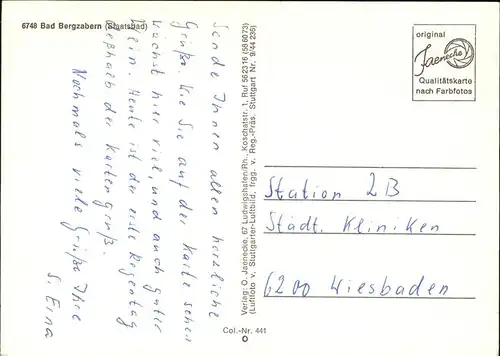 6748 Bad Bergzabern (Staatsbad)
Sende Ihnen allen herzliche
Grüße. Wie Sie auf der Karte sehen
wächst hier viel, und auch guter
Wein. Heute ist der erste Regentag
deßhalb der Kartengruß.
Nochmals viele Grüße Ihre
S. Erna
Verlag: O. Jaenecke, 67 Ludwigshafen/Rh., Koschatstr. 1, Ruf 56 23 16 (58 60 73)
(Luftfoto v. Stuttgarter-Luftbild, frgg. v. Reg.-Präs. Stuttgart Nr. 9/44 236)
original
Jaenecke
Qualitätskarte
nach Farbfotos
Station 2B
Städt. Kliniken
6200 Wiesbaden
Col.-Nr. 441